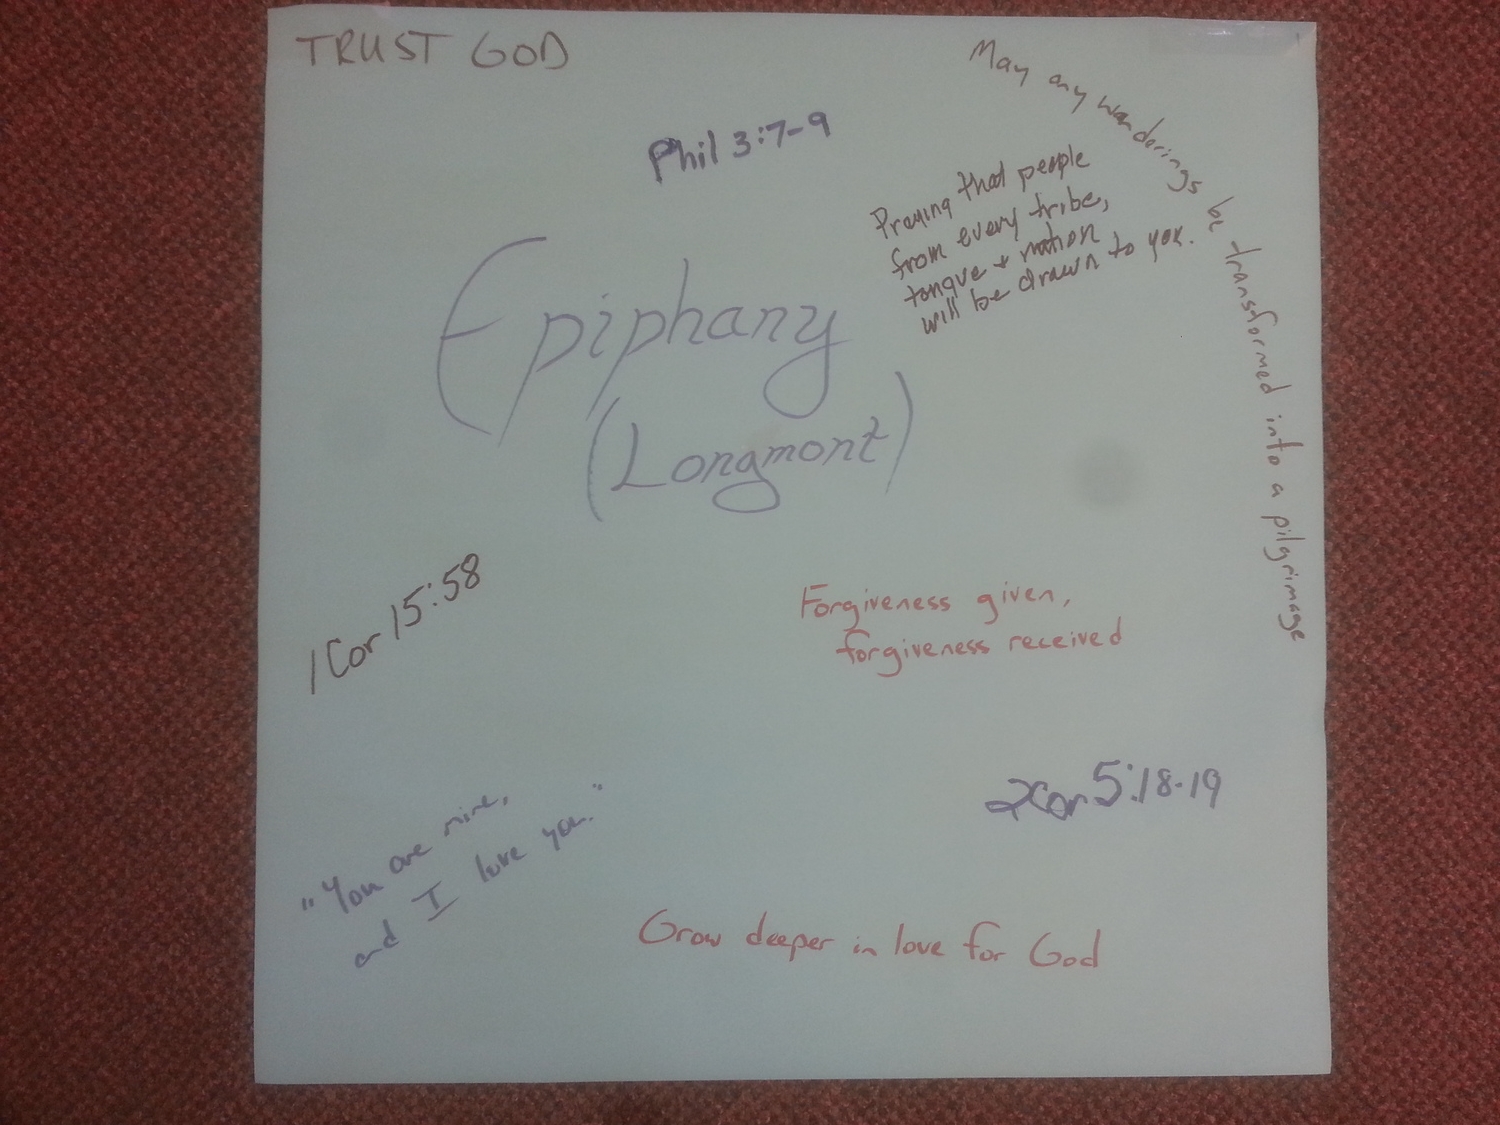 TRUST GOD
May any wanderings be transformed into a pilgrimage
Phil 3:7-9
Praying that people
from every tribe,
tongue + nation
will be drawn to you.
Epiphany
(Longmont)
1 Cor 15:58
Forgiveness given,
forgiveness received
2Cor 5:18-19
"You are mine,
and I love you."
Grow deeper in love for God